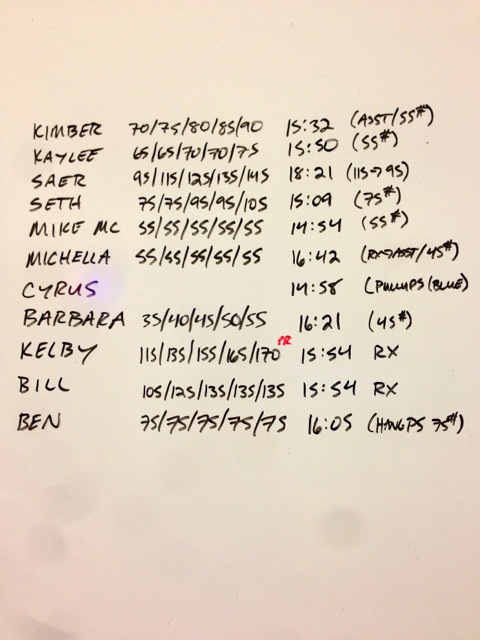 KIMBER 70/75/80/85/90 15:32 (ASST/55#)
KAYLEE 65/65/70/70/75 15:50 (55#)
SAER 95/115/125/135/145 18:21 (115→95)
SETH 75/75/95/95/105 15:09 (75#)
MIKE MC 55/55/55/55/55 14:54 (55#)
MICHELLA 55/55/55/55/55 16:42 (RX→ASST/45#)
CYRUS 14:58 (PULLUPS (BLUE)
BARBARA 35/40/45/50/55 16:21 (45#)
KELBY 115/135/155/165/170 PR 15:54 RX
BILL 105/125/135/135/135 15:54 RX
BEN 75/75/75/75/75 16:05 (HANG PS 75#)